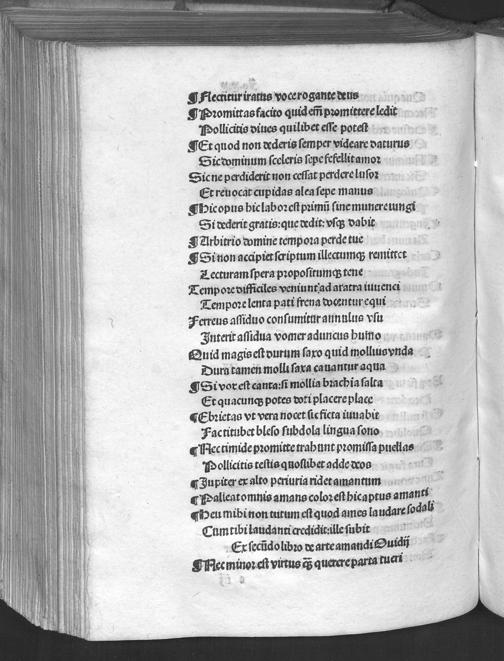 ¶ Flectitur iratus voce rogante deus
¶ Promittas facito quid em̄ promittere ledit
Pollicitis diues quilibet esse potest
¶ Et quod non dederis semper videare daturus
Sic dominum sceleris sepe fefellit amor
Sic ne perdiderit non cessat perdere lusor
Et reuocat cupidas alea sepe manus
¶ Hic opus hic labor est primū sine munere iungi
Si dederit gratis: que dedit: vsqȝ dabit
¶ Arbitrio domine tempora perde tue
¶ Si non accipiet scriptum illectumqȝ remittet
Lecturam spera propositumqȝ tene
Tempore difficiles veniunt ad aratra iuuenci
Tempore lenta pati frena docentur equi
Ferreus assiduo consumitur annulus vsu
Interit assidua vomer aduncus humo
Quid magis est durum saxo quid mollius vnda
Dura tamen molli saxa cauantur aqua
¶ Si vox est canta: si mollia brachia salta
Et quacunqȝ potes doti placere place
¶ Ebrietas vt vera nocet sic ficta iuuabit
Fac titubet bleso subdola lingua sono
¶ Nec timide promitte trahunt promissa puellas
Pollicitis testis quoslibet adde deos
¶ Jupiter ex alto periuria ridet amantum
¶ Palleat omnis amans color est hic aptus amanti
¶ Heu mihi non tutum est quod ames laudare sodali
Cum tibi laudanti credidit: ille subit
Ex secūdo libro de arte amandi Ouidij
¶ Nec minor est virtus qȝ̄ querere parta tueri